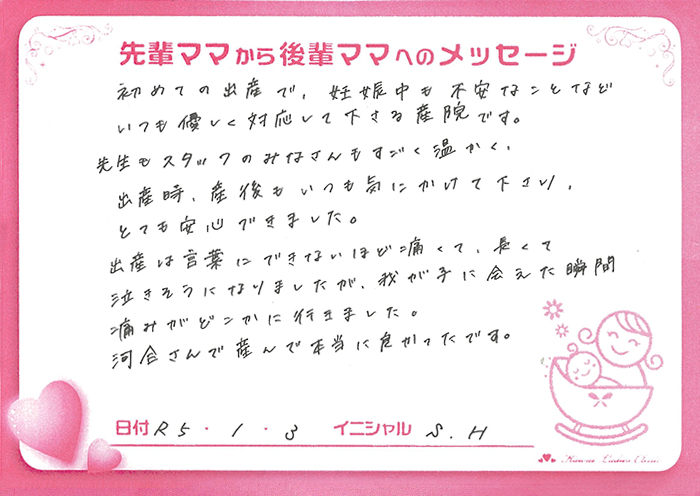 先輩ママから後輩ママへのメッセージ
初めての出産で、妊娠中も不安なことなど
いつも優しく対応して下さる産院です。
先生もスタッフのみなさんもすごく温かく、
出産時、産後もいつも気にかけて下さり、
とても安心できました。
出産は言葉にできないほど痛くて、長くて
泣きそうになりましたが、我が子に会えた瞬間
痛みがどこかに行きました。
河合さんで産んで本当に良かったです。
日付 R5・1・3 イニシャル S.H